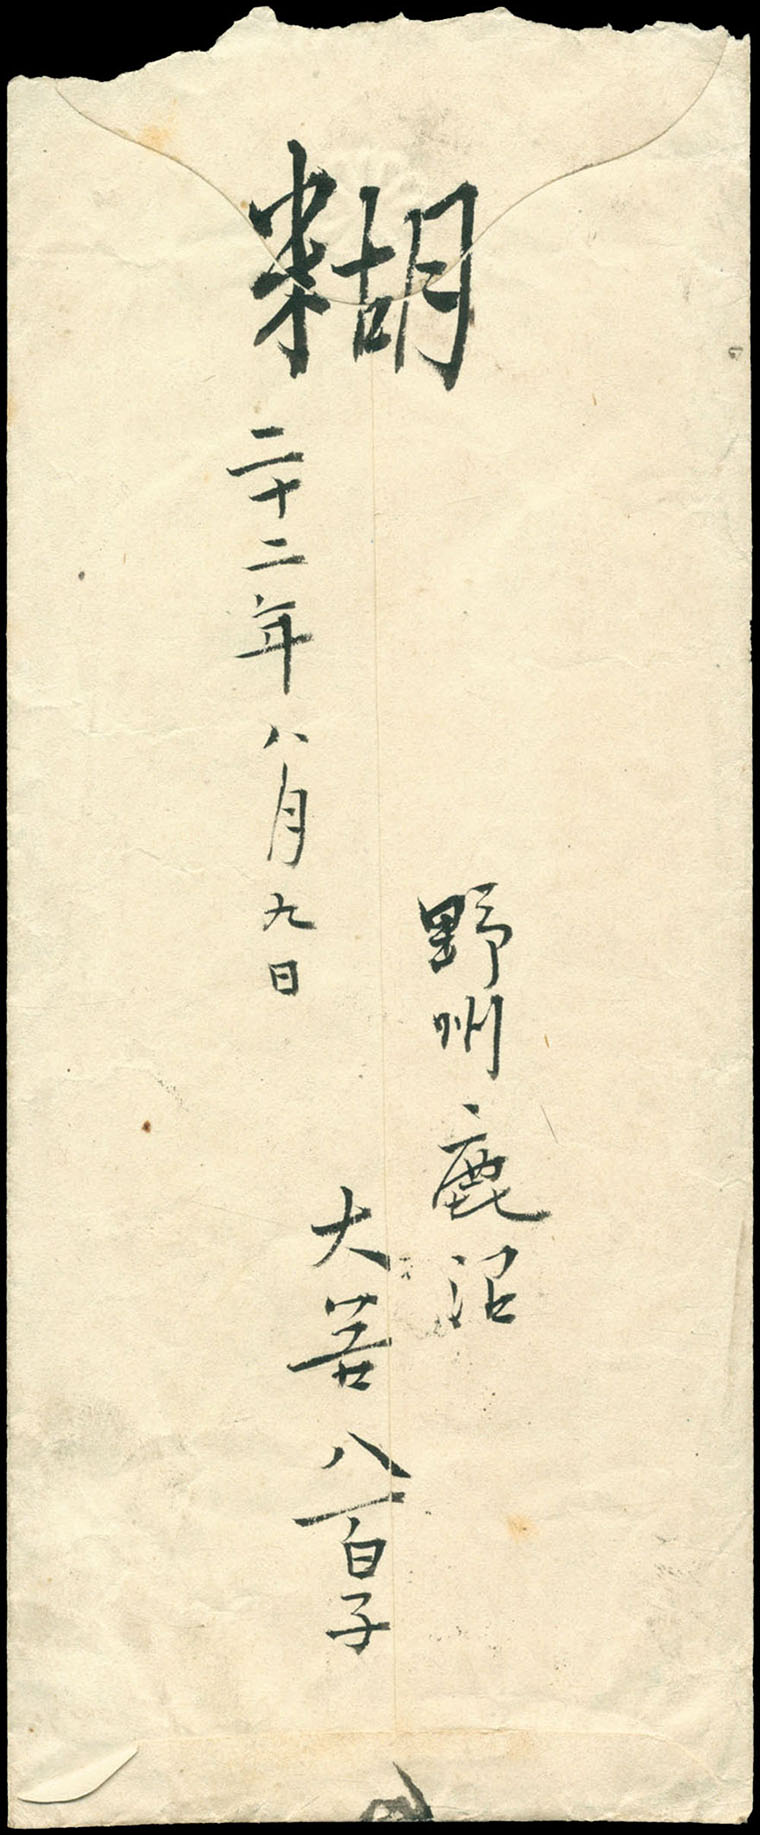 糊
野州鹿沼
大芦八百子
二十二年八月九日